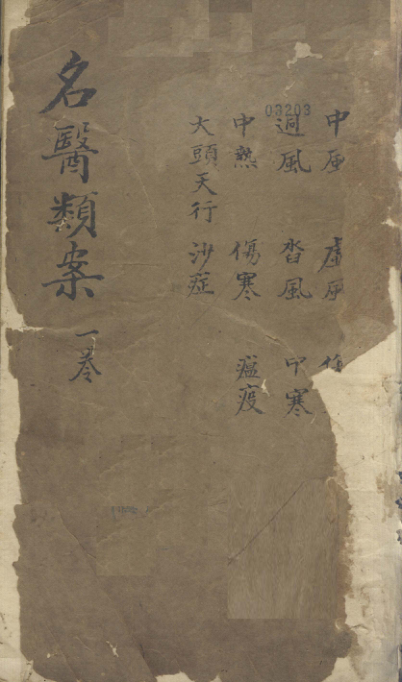 中風 虛風
迵風 沓風 中寒
03203
中熱 傷寒 瘟疫
大頭天行 沙症
名醫類案 一卷